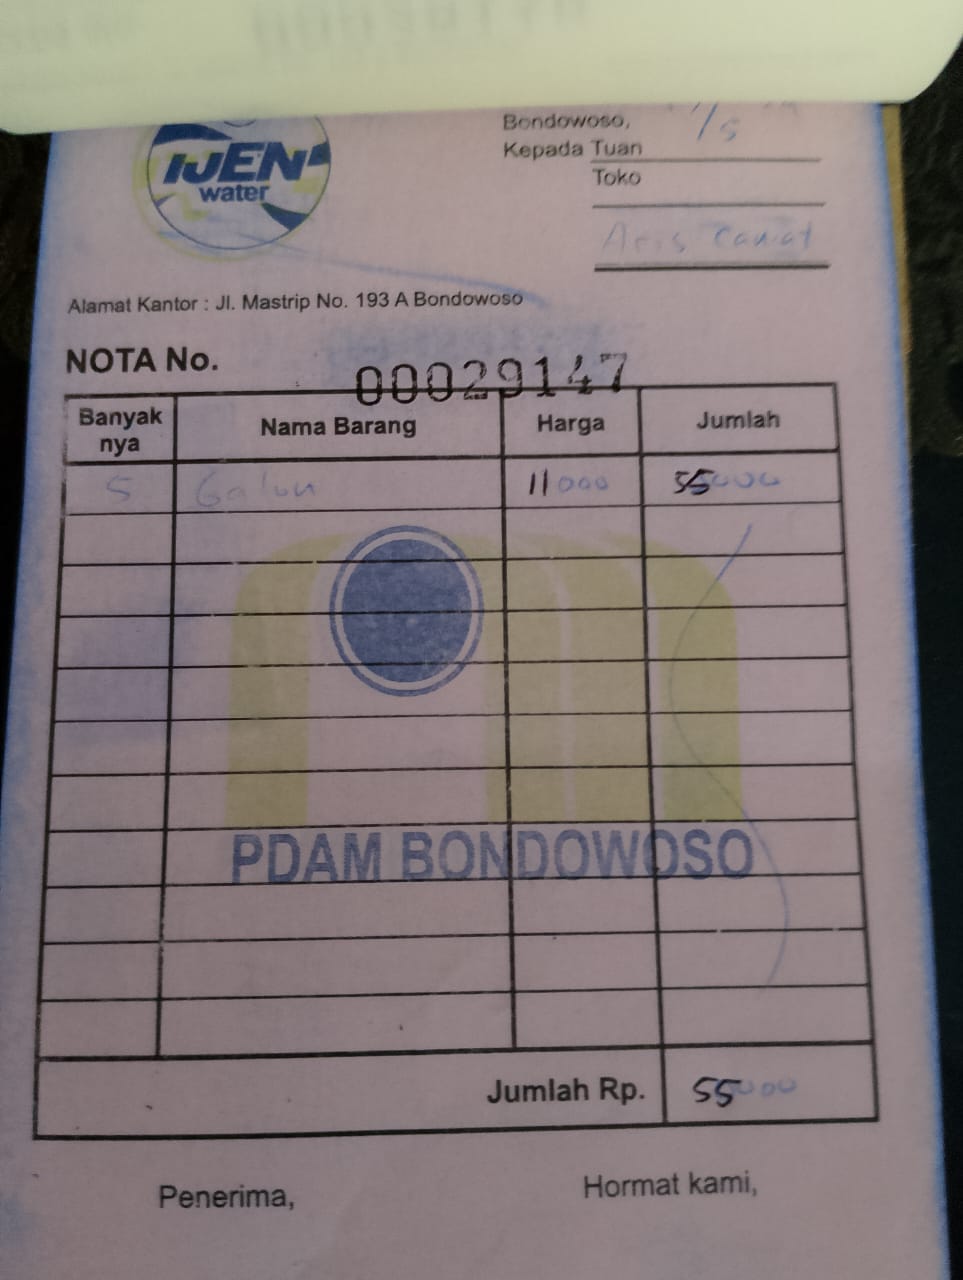 IJEN
water
Bondowoso, /5
Kepada Tuan
Toko
Aris
Alamat Kantor : Jl. Mastrip No. 193 A Bondowoso
NOTA No. 00029147
Banyak nya Nama Barang Harga Jumlah
5 Galon 11000 55000
PDAM BONDOWOSO
Jumlah Rp. 55000
Penerima, Hormat kami,